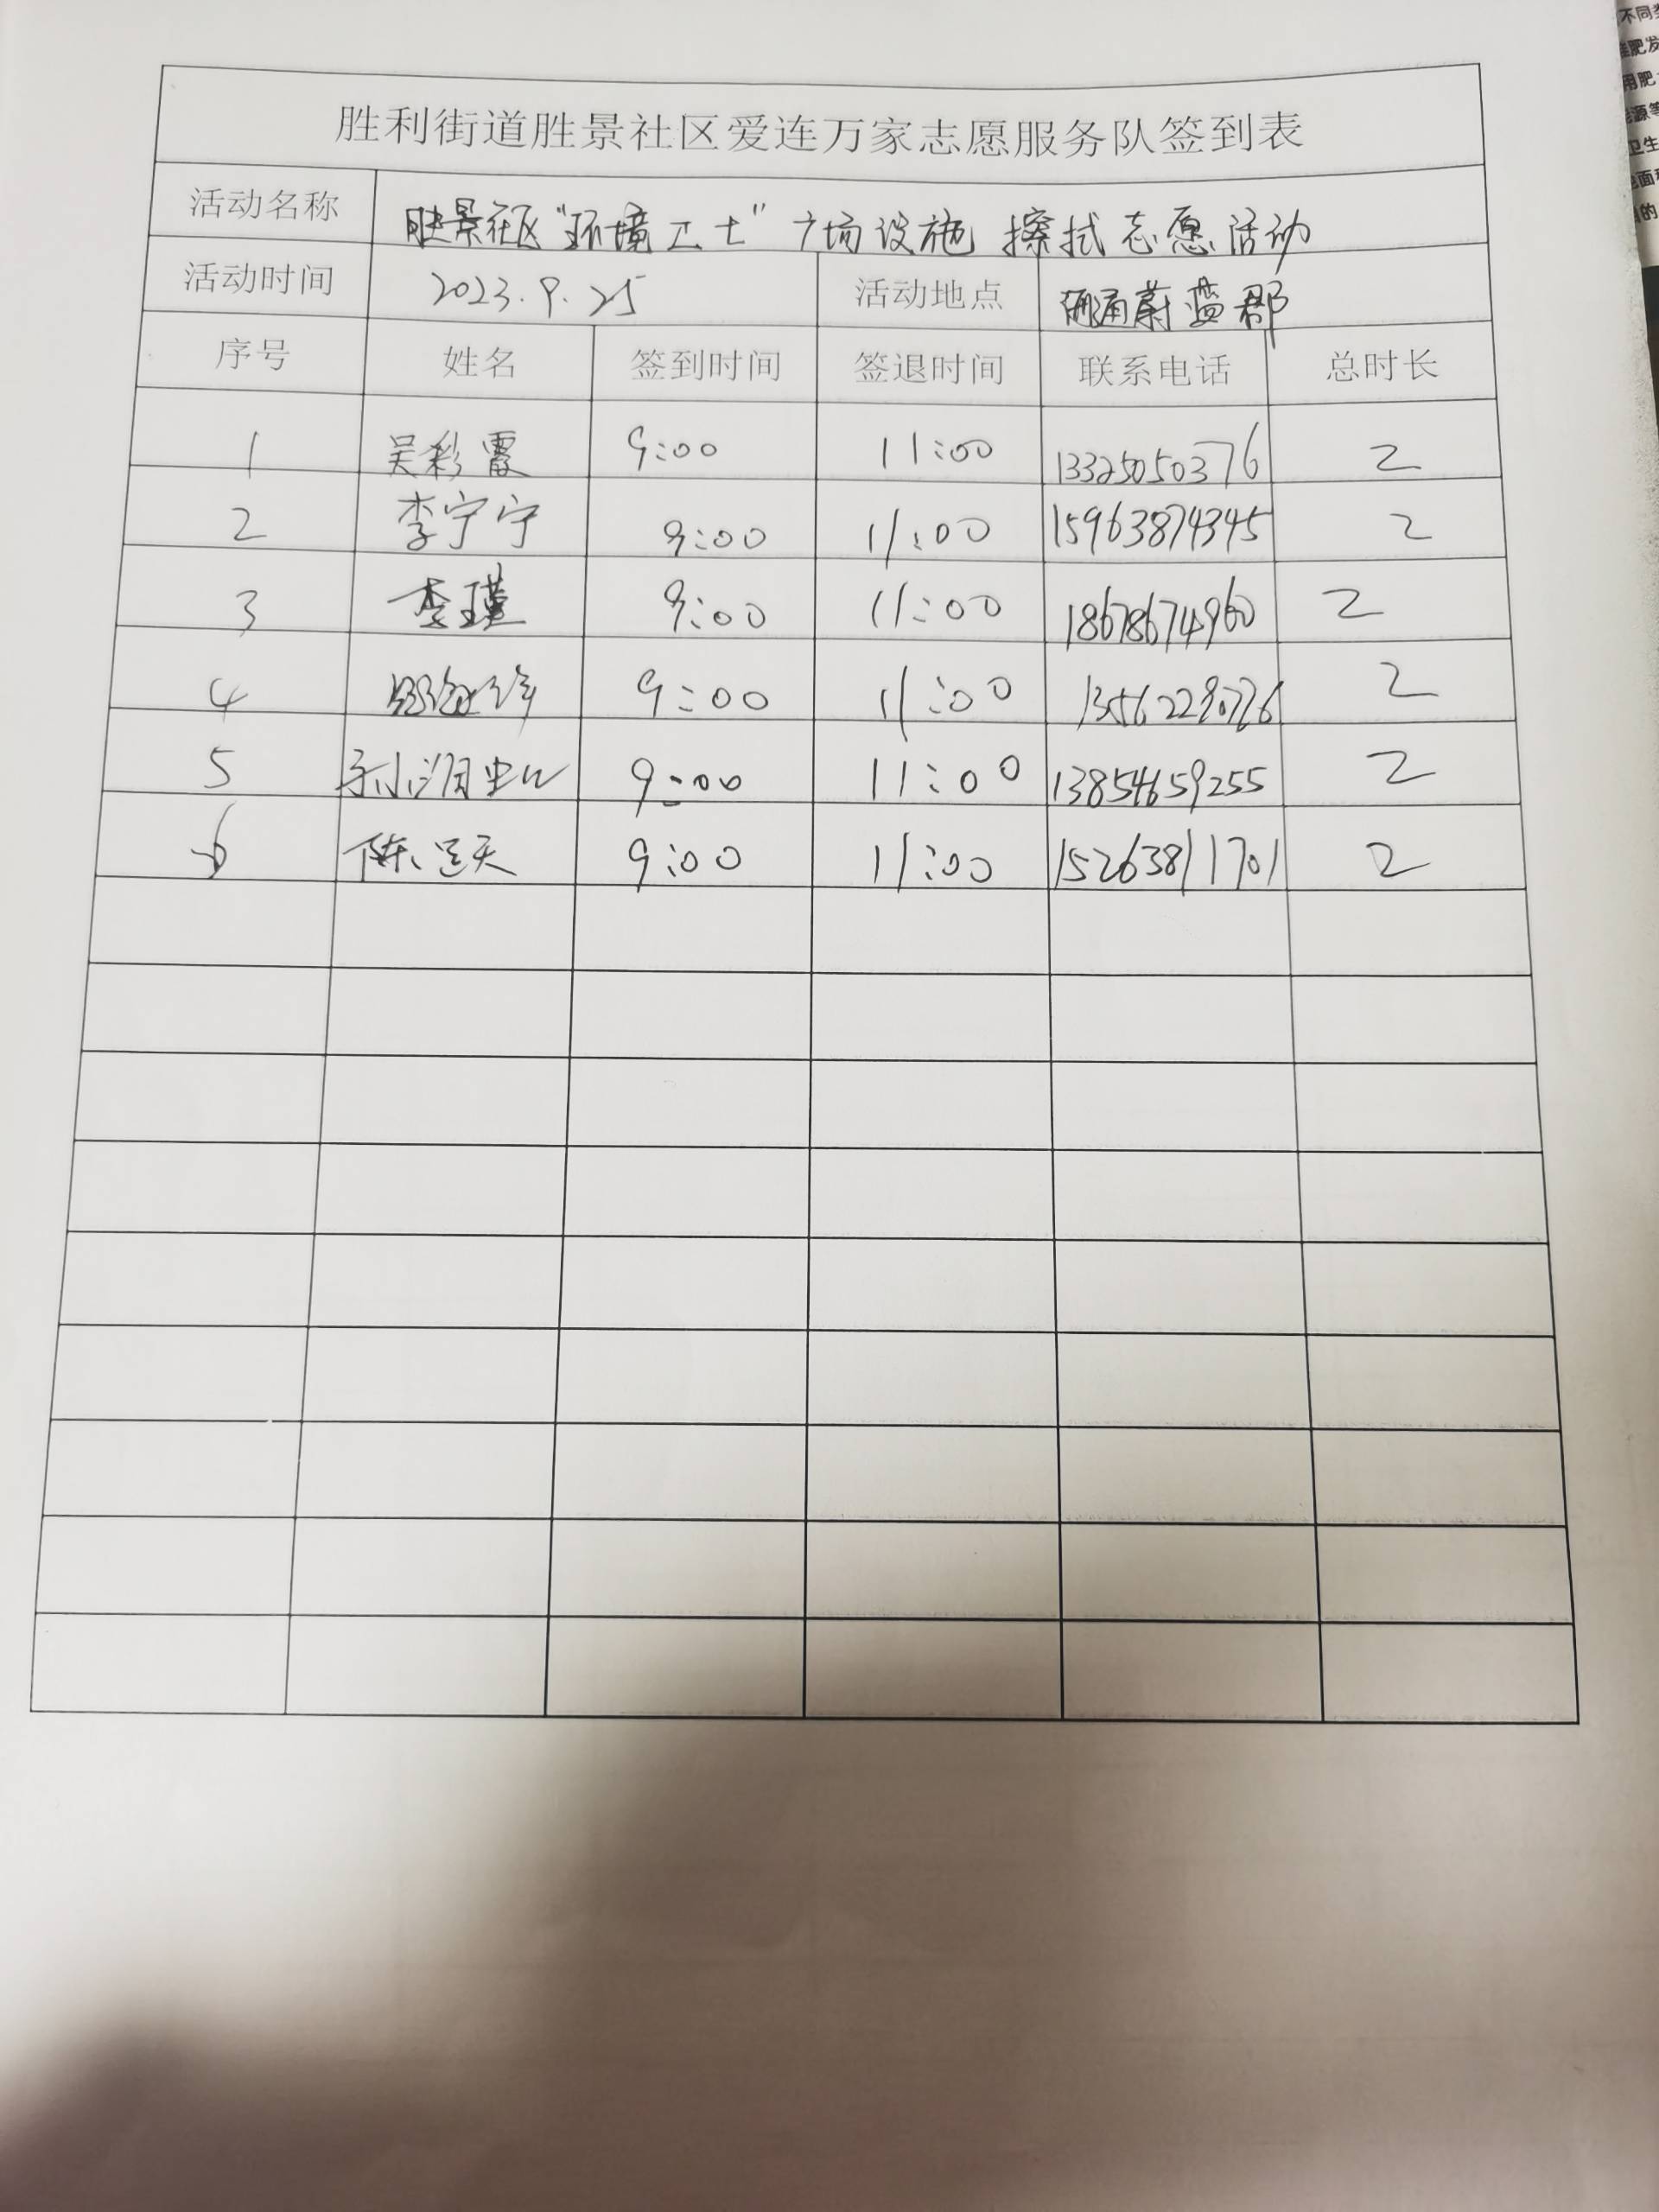 胜利街道胜景社区爱连万家志愿服务队签到表
活动名称 胜景社区“环境卫士”广场设施 擦拭志愿活动
活动时间 2023.9.25 活动地点 蔚蓝郡
序号 姓名 签到时间 签退时间 联系电话 总时长
1 吴彩霞 9:00 11:00 13325050376 2
2 李宁宁 9:00 11:00 15963874345 2
3 李瑾 9:00 11:00 18678674960 2
4 9:00 11:00 2
5 9:00 11:00 13854659255 2
6 9:00 11:00 15263811701 2
不同
肥发
用肥
源等
卫生
面积
的